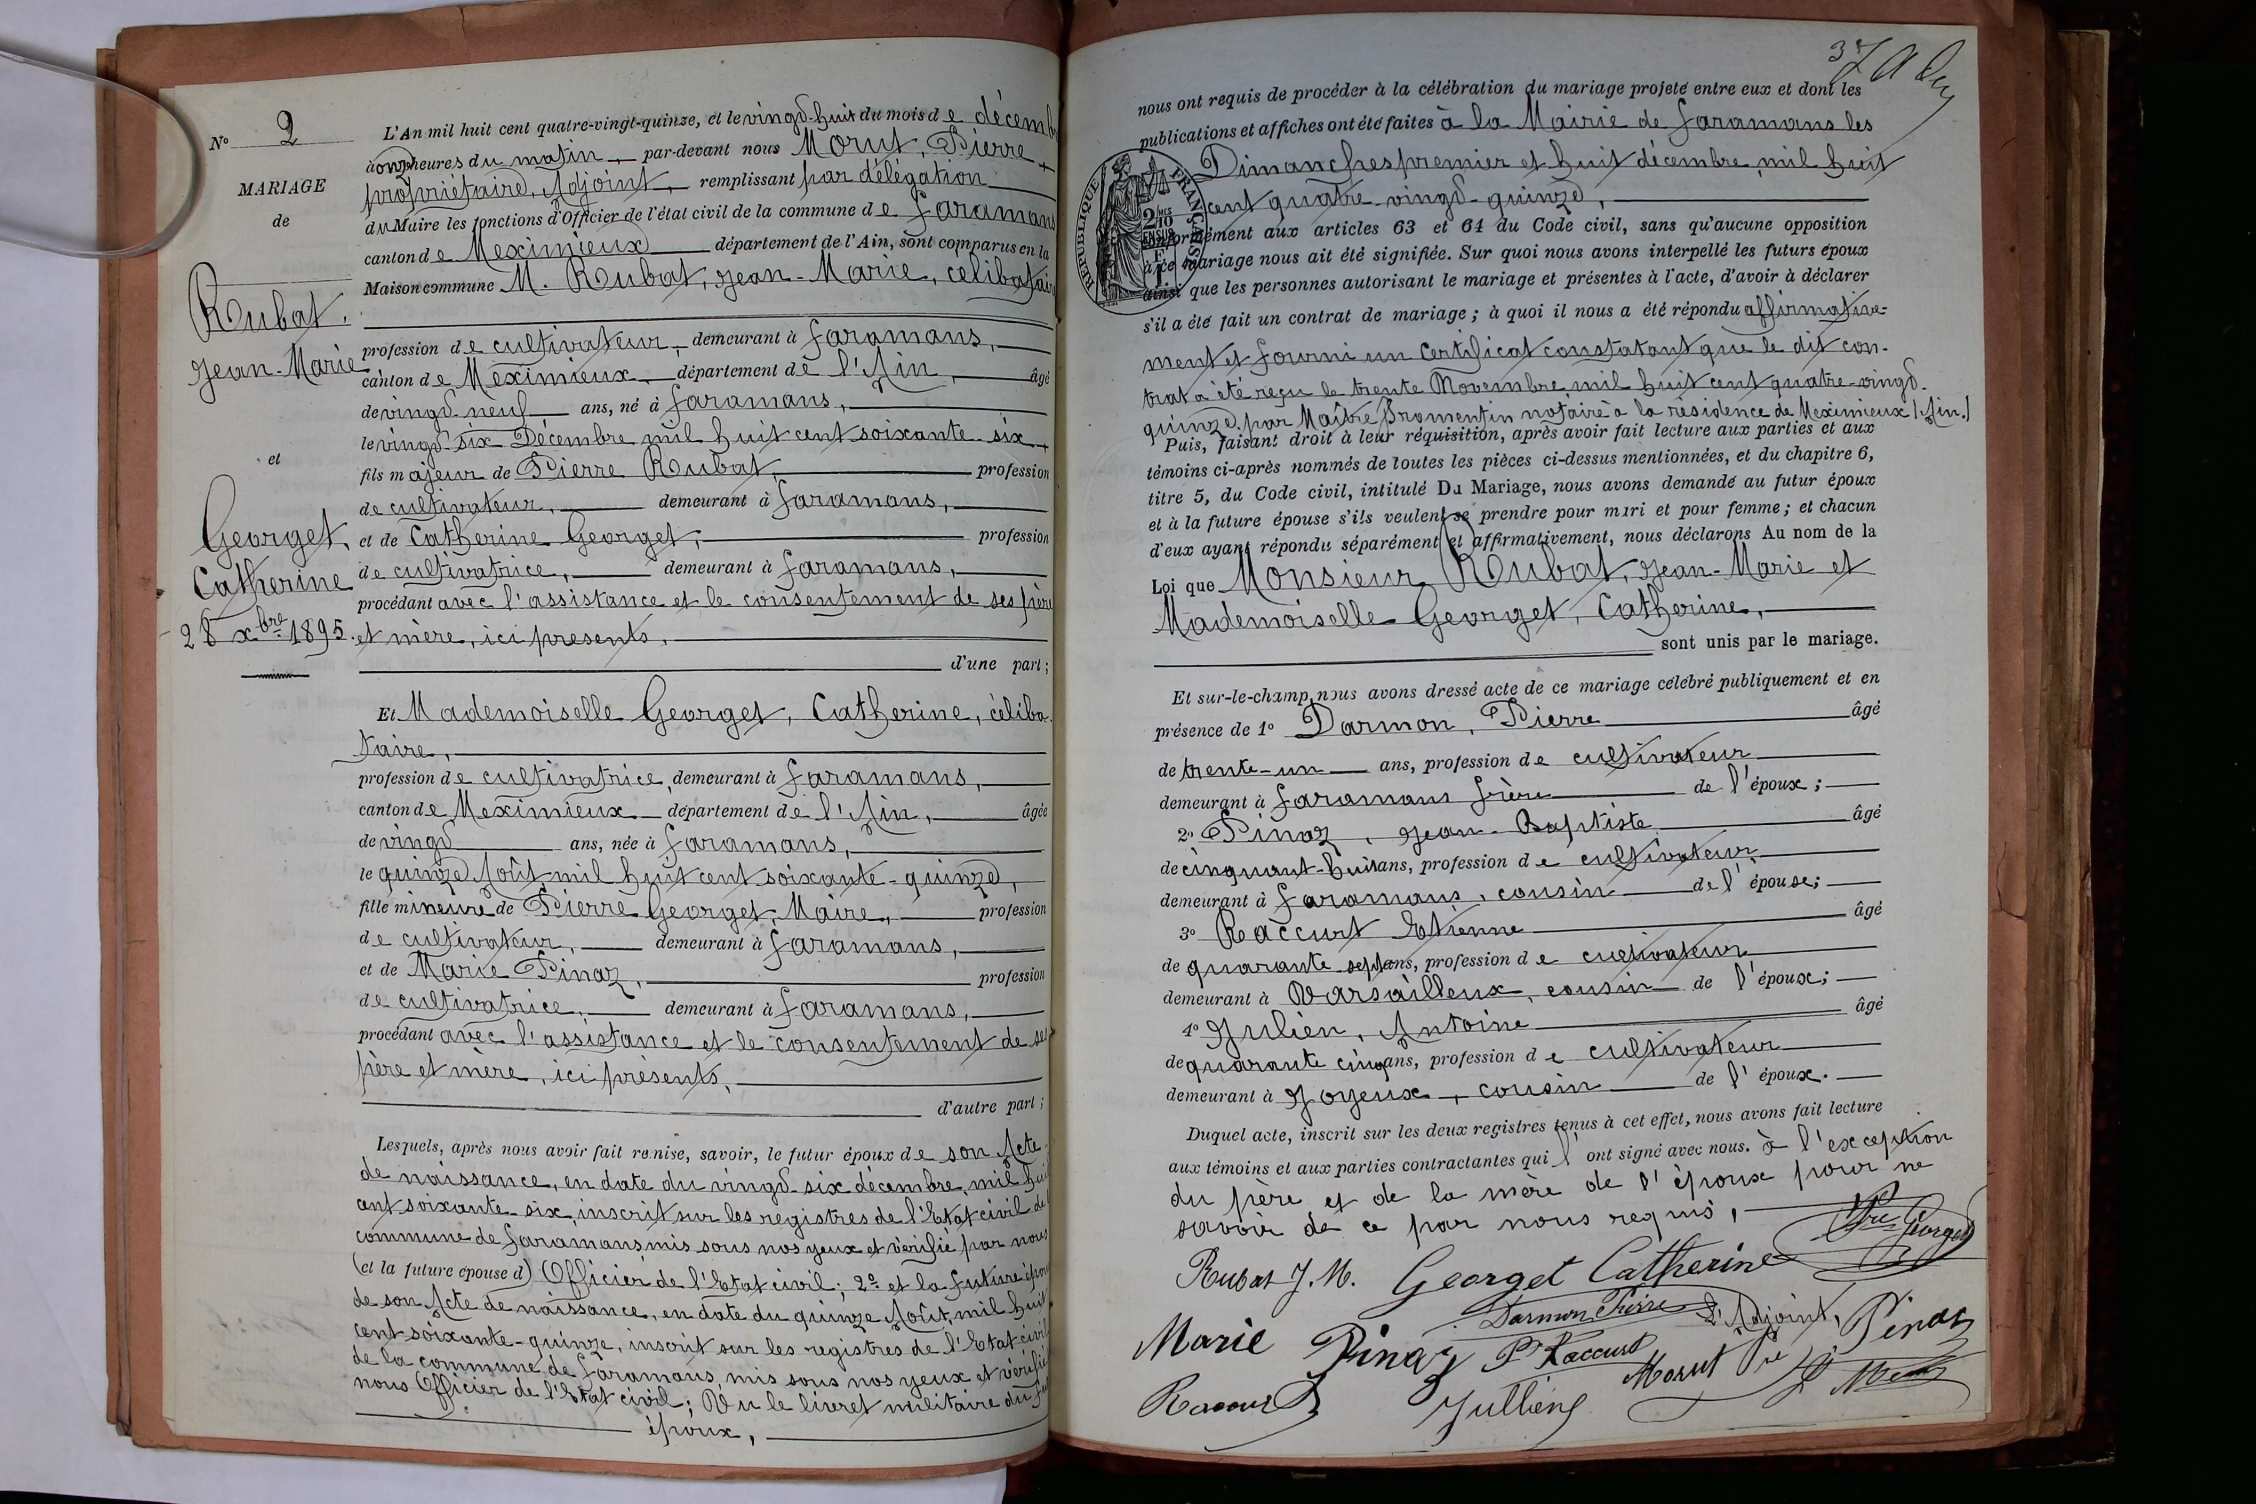 N° 2
MARIAGE
de
Rubat,
Jean-Marie
et
Georget,
Catherine
28 xbre 1895.
L'An mil huit cent quatre-vingt-quinze, et le vingt-huit du mois de décembre
à onze heures du matin, par-devant nous Morut, Pierre,
propriétaire, Adjoint, remplissant par délégation
du Maire les fonctions d'Officier de l'état civil de la commune de Faramans
canton de Meximieux département de l'Ain, sont comparus en la
Maison commune M. Rubat, Jean-Marie, célibataire
profession de cultivateur, demeurant à Faramans,
canton de Meximieux, département de l'Ain, âgé
de vingt-neuf ans, né à Faramans,
le vingt-six Décembre mil huit cent soixante-six,
fils majeur de Pierre Rubat, profession
de cultivateur, demeurant à Faramans,
et de Catherine Georget, profession
de cultivatrice, demeurant à Faramans,
procédant avec l'assistance et le consentement de ses père
et mère, ici présents,
d'une part;
Et Mademoiselle Georget, Catherine, céliba-
taire,
profession de cultivatrice, demeurant à Faramans,
canton de Meximieux département de l'Ain, âgée
de vingt ans, née à Faramans,
le quinze Août mil huit cent soixante-quinze,
fille mineure de Pierre Georget, Maire, profession
de cultivateur, demeurant à Faramans,
et de Marie Pinaz, profession
de cultivatrice, demeurant à Faramans,
procédant avec l'assistance et le consentement de ses
père et mère, ici présents,
d'autre part;
Lesquels, après nous avoir fait remise, savoir, le futur époux de son Acte
de naissance, en date du vingt-six décembre, mil huit
cent soixante-six, inscrit sur les registres de l'Etat civil de
commune de Faramans mis sous nos yeux et vérifié par nous
(et la future épouse d) Officier de l'Etat civil; 2° et la future épouse
de son Acte de naissance, en date du quinze Août, mil huit
cent soixante-quinze, inscrit sur les registres de l'Etat civil
de la commune de Faramans, mis sous nos yeux et vérifié
nous Officier de l'Etat civil; Vu le livret militaire du futur
époux,
37
nous ont requis de procéder à la célébration du mariage projeté entre eux et dont les
publications et affiches ont été faites à la Mairie de Faramans les
Dimanches premier et huit décembre, mil huit
cent quatre-vingt-quinze,
RÉPUBLIQUE FRANÇAISE
conformément aux articles 63 et 64 du Code civil, sans qu'aucune opposition
à ce mariage nous ait été signifiée. Sur quoi nous avons interpellé les futurs époux
ainsi que les personnes autorisant le mariage et présentes à l'acte, d'avoir à déclarer
s'il a été fait un contrat de mariage; à quoi il nous a été répondu affirmative-
ment et fourni un Certificat constatant que le dit con-
trat a été reçu le trente Novembre mil huit cent quatre-vingt-
quinze par Maître Fromentin notaire à la résidence de Meximieux (Ain.)
Puis, faisant droit à leur réquisition, après avoir fait lecture aux parties et aux
témoins ci-après nommés de toutes les pièces ci-dessus mentionnées, et du chapitre 6,
titre 5, du Code civil, intitulé Du Mariage, nous avons demandé au futur époux
et à la future épouse s'ils veulent se prendre pour mari et pour femme; et chacun
d'eux ayant répondu séparément et affirmativement, nous déclarons Au nom de la
Loi que Monsieur Rubat, Jean-Marie et
Mademoiselle Georget, Catherine,
sont unis par le mariage.
Et sur-le-champ nous avons dressé acte de ce mariage célébré publiquement et en
présence de 1° Darmon, Pierre âgé
de trente-un ans, profession de cultivateur
demeurant à Faramans frère de l'époux;
2° Pinaz, Jean-Baptiste âgé
de cinquant-huit ans, profession de cultivateur
demeurant à Faramans, cousin de l'épouse;
3° Raccurt Etienne âgé
de quarante sept ans, profession de cultivateur
demeurant à Varsailleux, cousin de l'époux;
4° Julien, Antoine âgé
de quarante cinq ans, profession de cultivateur
demeurant à Joyeux, cousin de l'époux.
Duquel acte, inscrit sur les deux registres tenus à cet effet, nous avons fait lecture
aux témoins et aux parties contractantes qui l'ont signé avec nous. à l'exception
du père et de la mère de l'époux pour ne
savoir de ce par nous requis,
Rubat J. M. Georget Catherine Pre Georget
Darmon Pierre L'Adjoint,
Marie Pinaz Pre Raccurt Morut Pre Pinaz
Raccurt Jullien